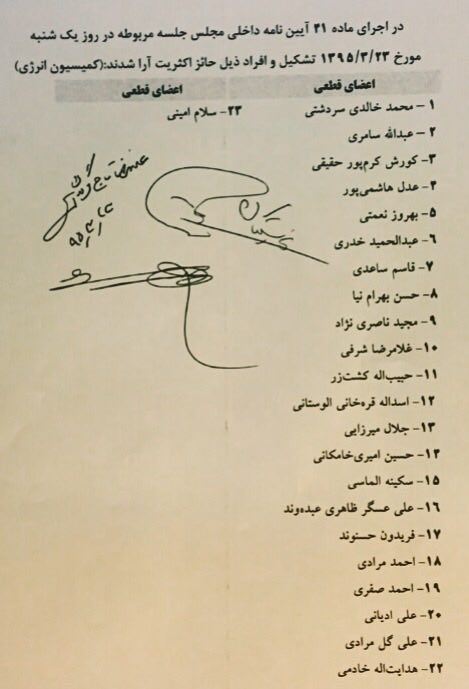 در اجرای ماده ۴۱ آیین نامه داخلی مجلس جلسه مربوطه در روز یک شنبه
مورخ ۱۳۹۵/۳/۲۳ تشکیل و افراد ذیل حائز اکثریت آرا شدند:(کمیسیون انرژی)
اعضای قطعی
اعضای قطعی
۱- محمد خالدی سردشتی
۲- عبدالله سامری
۳- کورش کرم‌پور حقیقی
۴- عدل هاشمی‌پور
۵- بهروز نعمتی
۶- عبدالحمید خدری
۷- قاسم ساعدی
۸- حسن بهرام نیا
۹- مجید ناصری نژاد
۱۰- غلامرضا شرفی
۱۱- حبیب‌اله کشت‌زر
۱۲- اسداله قره‌خانی الوستانی
۱۳- جلال میرزایی
۱۴- حسین امیری‌خامکانی
۱۵- سکینه الماسی
۱۶- علی عسگر ظاهری عبده‌وند
۱۷- فریدون حسنوند
۱۸- احمد مرادی
۱۹- احمد صفری
۲۰- علی ادیانی
۲۱- علی گل مرادی
۲۲- هدایت‌اله خادمی
۲۳- سلام امینی